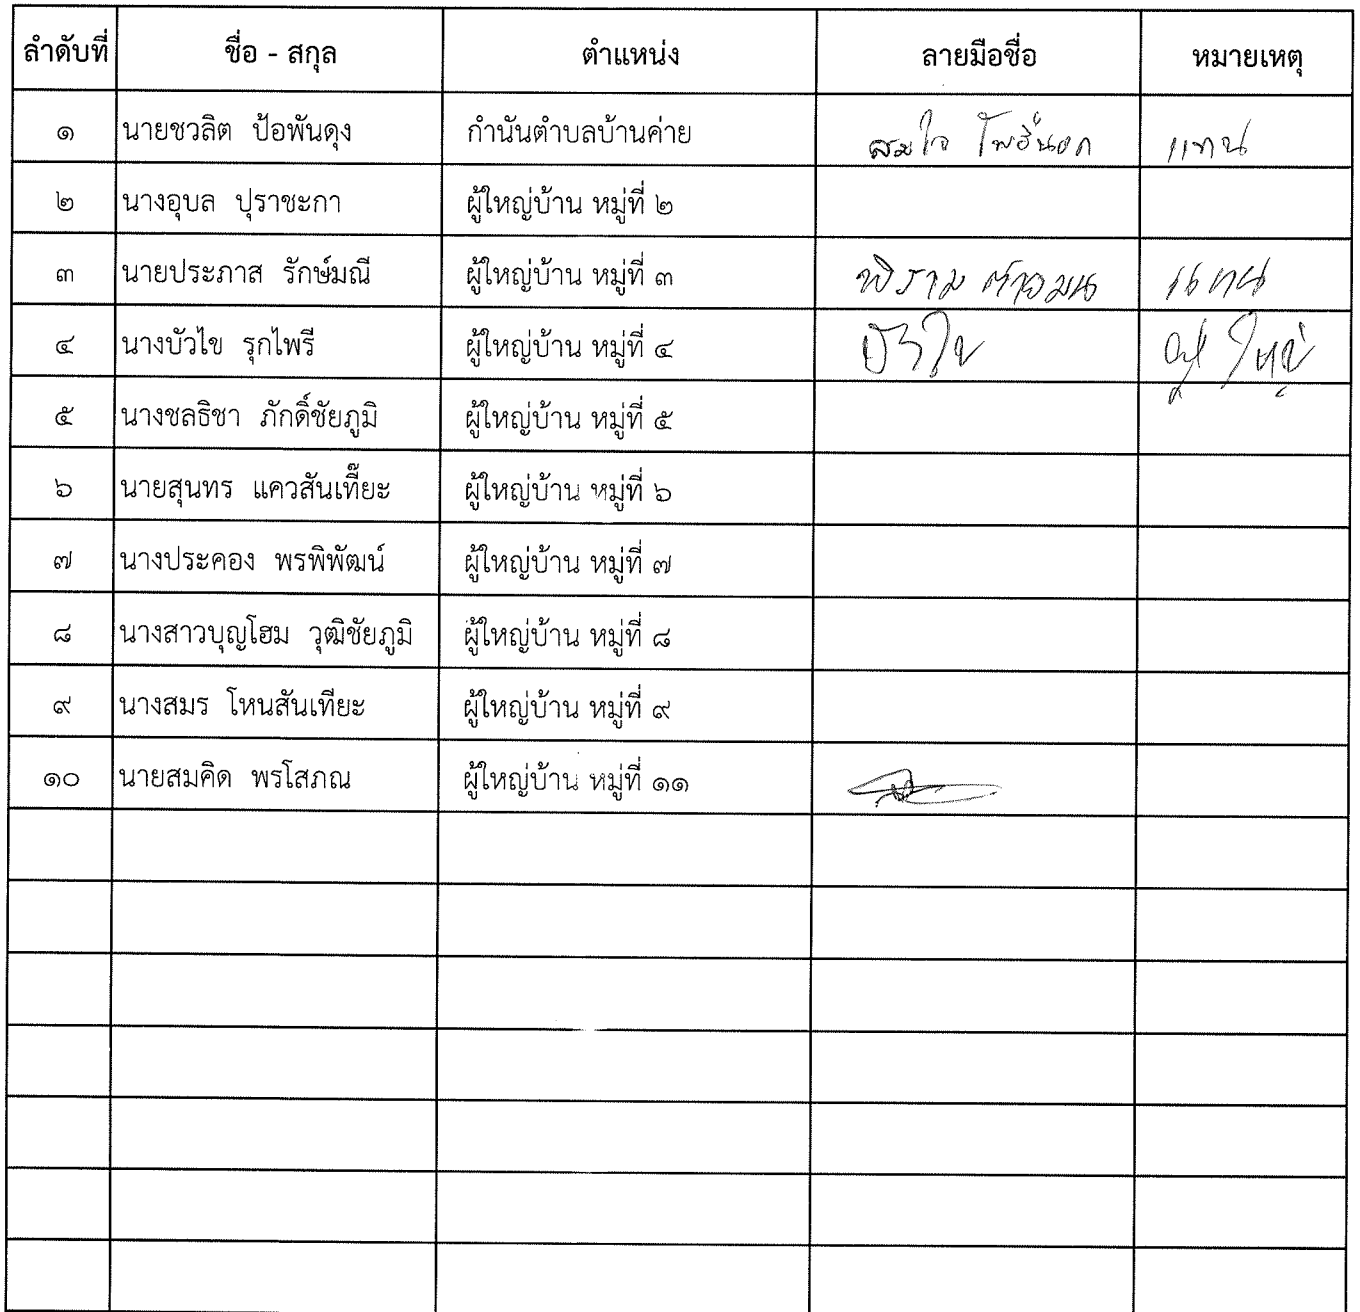 ลำดับที่ ชื่อ - สกุล ตำแหน่ง ลายมือชื่อ หมายเหตุ
๑ นายชวลิต ป้อพันดุง กำนันตำบลบ้านค่าย สมใจ โพธิ์นอก แทน
๒ นางอุบล ปุราชะกา ผู้ใหญ่บ้าน หมู่ที่ ๒
๓ นายประภาส รักษ์มณี ผู้ใหญ่บ้าน หมู่ที่ ๓ แทน
๔ นางบัวไข รุกไพรี ผู้ใหญ่บ้าน หมู่ที่ ๔ บัวไข ผู้ใหญ่
๕ นางชลธิชา ภักดิ์ชัยภูมิ ผู้ใหญ่บ้าน หมู่ที่ ๕
๖ นายสุนทร แควสันเที๊ยะ ผู้ใหญ่บ้าน หมู่ที่ ๖
๗ นางประคอง พรพิพัฒน์ ผู้ใหญ่บ้าน หมู่ที่ ๗
๘ นางสาวบุญโฮม วุฒิชัยภูมิ ผู้ใหญ่บ้าน หมู่ที่ ๘
๙ นางสมร โหนสันเทียะ ผู้ใหญ่บ้าน หมู่ที่ ๙
๑๐ นายสมคิด พรโสภณ ผู้ใหญ่บ้าน หมู่ที่ ๑๑